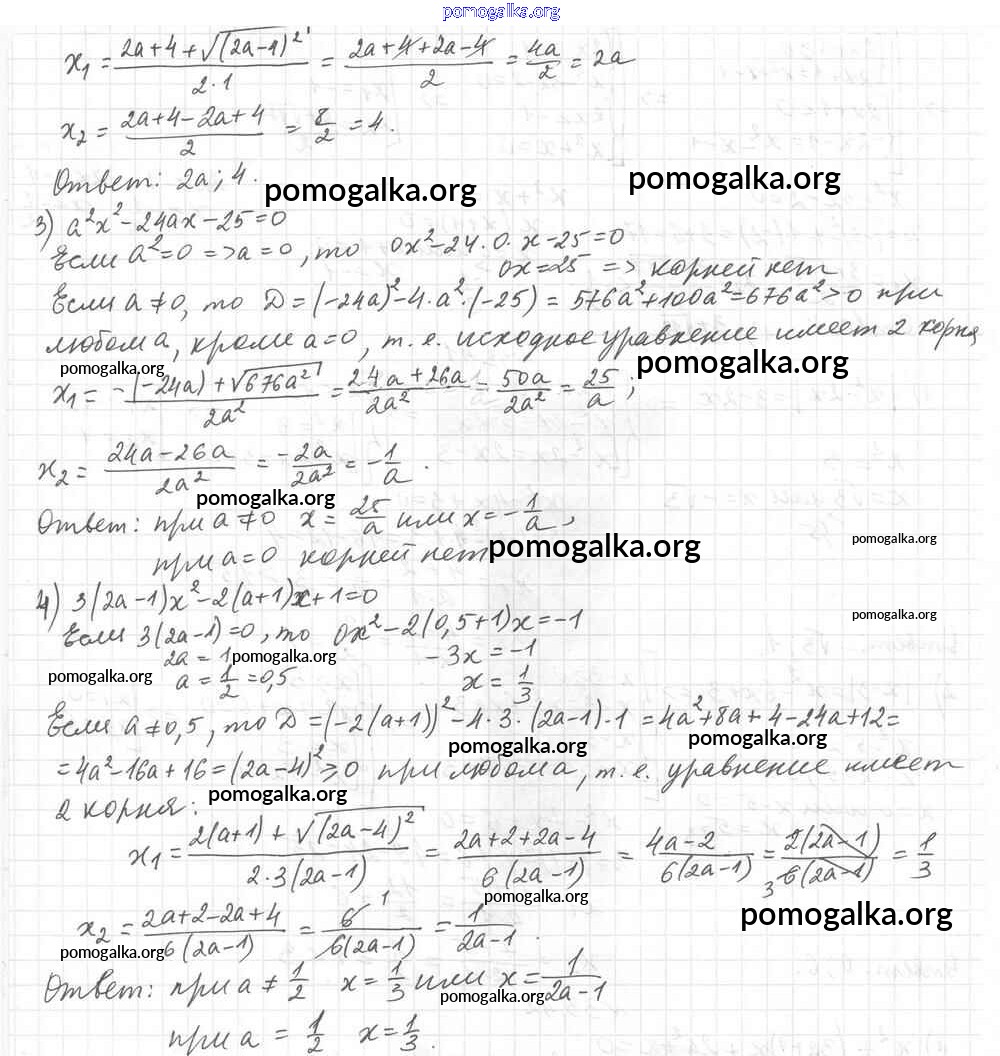 pomogalka.org
x₁ = (2a+4+√(2a-1)²)/(2·1) = (2a+4+2a-4)/2 = 4a/2 = 2a
x₂ = (2a+4-2a+4)/2 = 8/2 = 4.
Ответ: 2a; 4.
pomogalka.org pomogalka.org
3) a²x²-24ax-25=0
Если a²=0 => a=0, то 0x²-24·0·x-25=0
0x=25 => корней нет
Если a≠0, то D=(-24a)²-4·a²·(-25) = 576a²+100a²=676a²>0 при
любом a, кроме a=0, т. е. исходное уравнение имеет 2 корня
pomogalka.org pomogalka.org
x₁ = (-(-24a)+√676a²)/(2a²) = (24a+26a)/(2a²) = 50a/(2a²) = 25/a;
x₂ = (24a-26a)/(2a²) = -2a/(2a²) = -1/a.
pomogalka.org
Ответ: при a≠0 x = 25/a или x = -1/a,
при a=0 корней нет
pomogalka.org pomogalka.org
4) 3(2a-1)x²-2(a+1)x+1=0
pomogalka.org
Если 3(2a-1)=0, то 0x²-2(0,5+1)x=-1
2a = 1 -3x=-1
pomogalka.org pomogalka.org
a = 1/2 = 0,5 x = 1/3
Если a≠0,5, то D=(-2(a+1))²-4·3·(2a-1)·1 = 4a²+8a+4-24a+12=
pomogalka.org pomogalka.org
=4a²-16a+16=(2a-4)²≥0 при любом a, т. е. уравнение имеет
pomogalka.org
2 корня:
x₁ = (2(a+1)+√(2a-4)²)/(2·3(2a-1)) = (2a+2+2a-4)/(6(2a-1)) = (4a-2)/(6(2a-1)) = 2(2a-1)/(6(2a-1)) 3 = 1/3
pomogalka.org pomogalka.org
x₂ = (2a+2-2a+4)/(6(2a-1)) = 6 1/(6(2a-1)) = 1/(2a-1).
pomogalka.org
Ответ: при a≠1/2 x=1/3 или x=1/(2a-1)
pomogalka.org
при a = 1/2 x=1/3.